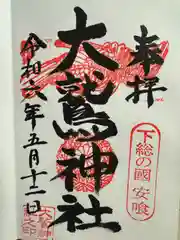 奉拝
下総の國 安喰
大鷲神社
令和六年五月十二日